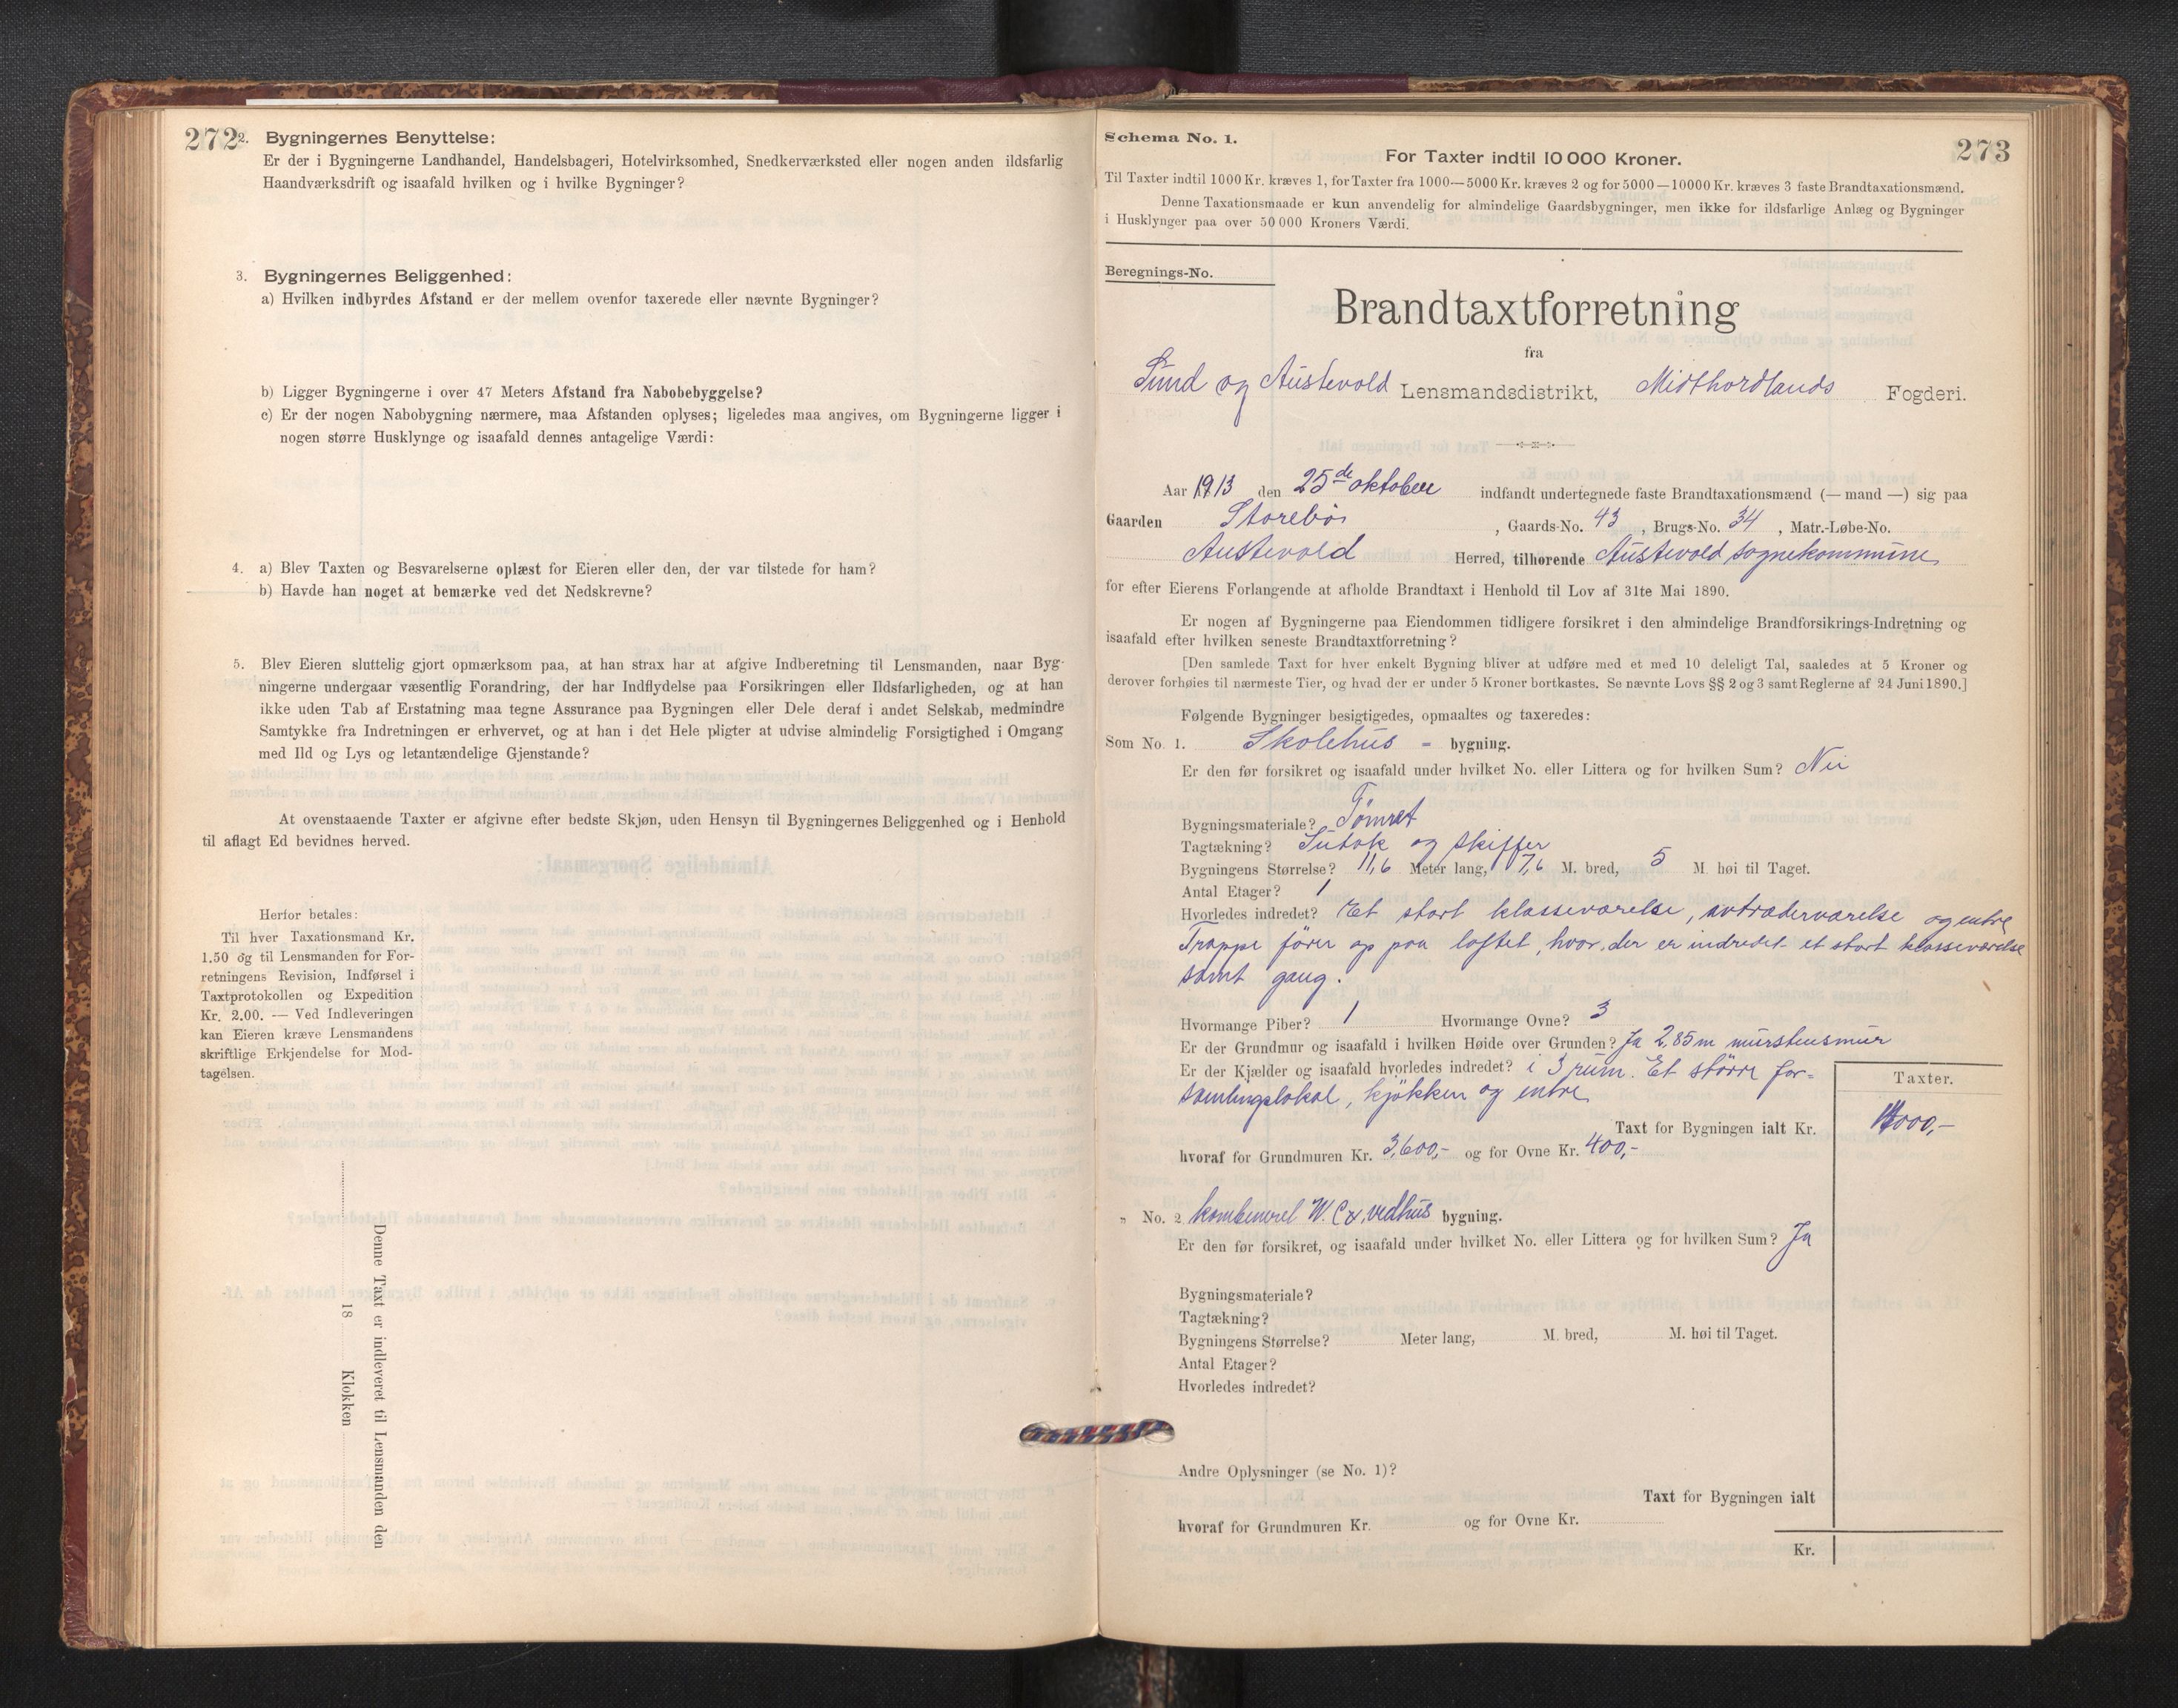 272
2. Bygningernes Benyttelse:
Er der i Bygningerne Landhandel, Handelsbageri, Hotelvirksomhed, Snedkerværksted eller nogen anden ildsfarlig
Haandværksdrift og isaafald hvilken og i hvilke Bygninger?
3. Bygningernes Beliggenhed:
a) Hvilken indbyrdes Afstand er der mellem ovenfor taxerede eller nævnte Bygninger?
b) Ligger Bygningerne i over 47 Meters Afstand fra Nabobebyggelse?
c) Er der nogen Nabobygning nærmere, maa Afstanden oplyses; ligeledes maa angives, om Bygningerne ligger i
nogen større Husklynge og isaafald dennes antagelige Værdi:
4. a) Blev Taxten og Besvarelserne oplæst for Eieren eller den, der var tilstede for ham?
b) Havde han noget at bemærke ved det Nedskrevne?
5. Blev Eieren sluttelig gjort opmærksom paa, at han strax har at afgive Indberetning til Lensmanden, naar Byg-
ningerne undergaar væsentlig Forandring, der har Indflydelse paa Forsikringen eller Ildsfarligheden, og at han
ikke uden Tab af Erstatning maa tegne Assurance paa Bygningen eller Dele deraf i andet Selskab, medmindre
Samtykke fra Indretningen er erhvervet, og at han i det Hele pligter at udvise almindelig Forsigtighed i Omgang
med Ild og Lys og letantændelige Gjenstande?
At ovenstaaende Taxter er afgivne efter bedste Skjøn, uden Hensyn til Bygningernes Beliggenhed og i Henhold
til aflagt Ed bevidnes herved.
Herfor betales:
Til hver Taxationsmand Kr.
1.50 og til Lensmanden for For-
retningens Revision, Indførsel i
Taxtprotokollen og Expedition
Kr. 2.00. — Ved Indleveringen
kan Eieren kræve Lensmandens
skriftlige Erkjendelse for Mod-
tagelsen.
Denne Taxt er indleveret til Lensmanden den
18 Klokken
Schema No. 1.
273
For Taxter indtil 10 000 Kroner.
Til Taxter indtil 1000 Kr. kræves 1, for Taxter fra 1000—5000 Kr. kræves 2 og for 5000—10000 Kr. kræves 3 faste Brandtaxationsmænd.
Denne Taxationsmaade er kun anvendelig for almindelige Gaardsbygninger, men ikke for ildsfarlige Anlæg og Bygninger
i Husklynger paa over 50 000 Kroners Værdi.
Beregnings-No.
Brandtaxtforretning
fra
Sund og Austevold Lensmandsdistrikt, Midthordlands Fogderi.
Aar 1913 den 25de oktober indfandt undertegnede faste Brandtaxationsmænd (— mand —) sig paa
Gaarden Storebø, Gaards-No. 43, Brugs-No. 34, Matr.-Løbe-No.
Austevold Herred, tilhørende Austevold sognekommune
for efter Eierens Forlangende at afholde Brandtaxt i Henhold til Lov af 31te Mai 1890.
Er nogen af Bygningerne paa Eiendommen tidligere forsikret i den almindelige Brandforsikrings-Indretning og
isaafald efter hvilken seneste Brandtaxtforretning?
[Den samlede Taxt for hver enkelt Bygning bliver at udføre med et med 10 deleligt Tal, saaledes at 5 Kroner og
derover forhøies til nærmeste Tier, og hvad der er under 5 Kroner bortkastes. Se nævnte Lovs §§ 2 og 3 samt Reglerne af 24 Juni 1890.]
Følgende Bygninger besigtigedes, opmaaltes og taxeredes:
Som No. 1. Skolehus - bygning.
Er den før forsikret og isaafald under hvilket No. eller Littera og for hvilken Sum? Nei
Bygningsmateriale? Tømret
Tagtækning? Sutak og skiffer
Bygningens Størrelse? 11,6 Meter lang, 7,6 M. bred, 5 M. høi til Taget.
Antal Etager? 1
Hvorledes indredet? Et stort klasseværelse, avtrædeværelse og entre
Trappe fører op paa loftet, hvor der er indredet et stort klasseværelse
samt gang.
Hvormange Piber? 1 Hvormange Ovne? 3
Er der Grundmur og isaafald i hvilken Høide over Grunden? Ja 2,85m murstensmur
Er der Kjælder og isaafald hvorledes indredet? i 3 rum. Et større for-
samlingslokal, kjøkken og entre
Taxter.
Taxt for Bygningen ialt Kr. 14000,-
hvoraf for Grundmuren Kr. 3,600,- og for Ovne Kr. 400,-
„ No. 2 W.C & vedhus bygning.
Er den før forsikret, og isaafald under hvilket No. eller Littera og for hvilken Sum? Ja
Bygningsmateriale?
Tagtækning?
Bygningens Størrelse? Meter lang, M. bred, M. høi til Taget.
Antal Etager?
Hvorledes indredet?
Andre Oplysninger (se No. 1)?
Taxt for Bygningen ialt
hvoraf for Grundmuren Kr. og for Ovne Kr.
Kr.